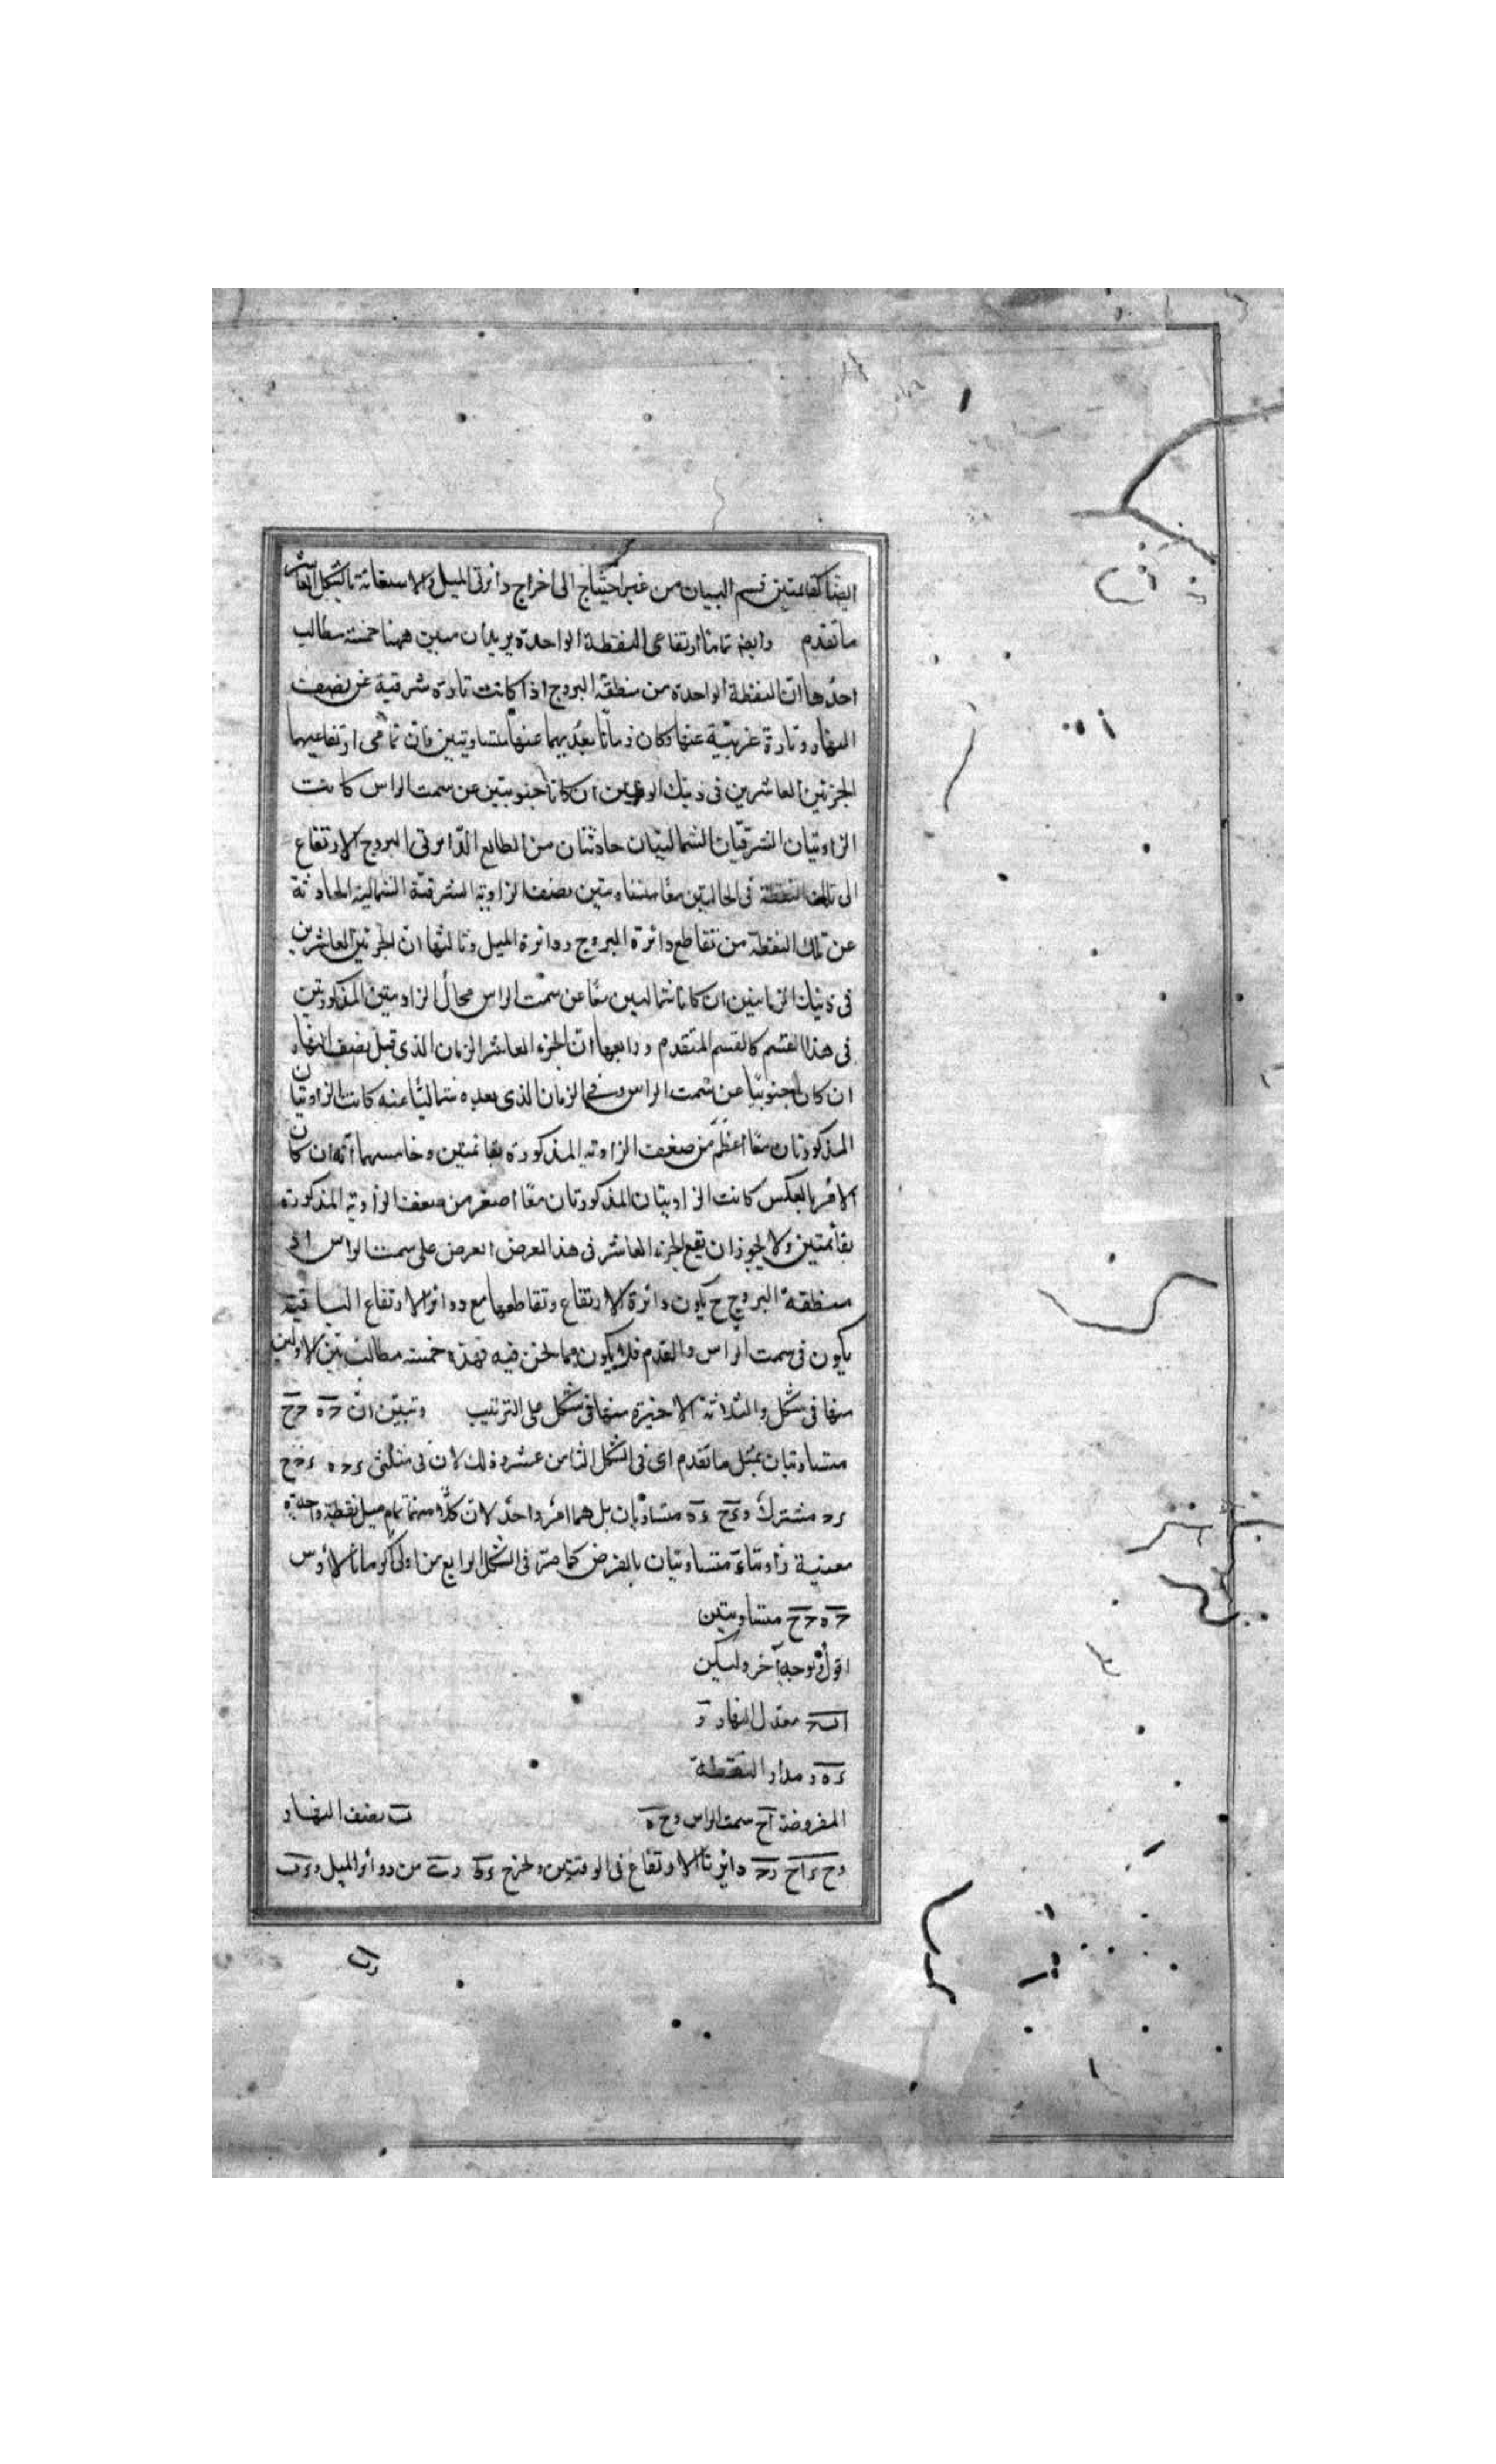 ايضا كقائمتين قسم البيان من غير احتياج الى اخراج دائرتى الميل والاستعانة بالشكل العاشر
ما تقدم وايضا تماما ارتفاعى للنقطة الواحدة يريد ان يبين ههنا خمسة مطالب
احدها ان النقطة الواحدة من منطقة البروج اذا كانت تارة شرقية عن نصف
النهار وتارة غربية عنها وكان زمانا بعديهما عنها متساويين فان تمامى ارتفاعيهما
الجزئين العاشرين فى ذينك الوقتين ان كانا جنوبيين عن سمت الراس كانت
الزاويتان الشرقيتان الشماليتان حادثتان من الطالع الدائرتى البروج الارتفاع
الى تلك النقطة فى الحالتين معا متساويتين بضعف الزاوية الشرقية الشمالية الحادثة
عن تلك النقطة من تقاطع دائرة البروج ودائرة الميل وثالثها ان الجزئين العاشرين
فى ذينك الزمانين ان كانا شماليين معا عن سمت الراس محال الزاويتين المذكورتين
فى هذا القسم كالقسم المتقدم ورابعها ان الجزء العاشر الزمان الذى قبل نصف النهار
ان كان جنوبيا عن سمت الراس وفى الزمان الذى بعده شماليا عنه كانت الزاويتان
المذكورتان معا اعظم من ضعف الزاوية المذكورة بقائمتين وخامسها انه ان كان
الامر بالعكس كانت الزاويتان المذكورتان معا اصغر من ضعف الزاوية المذكورة
بقائمتين ولا يجوز ان يقع الجزء العاشر فى هذا العرض العرض على سمت الراس اذ
منطقة البروج ح يكون دائرة الارتفاع وتقاطعها مع دوائر الارتفاع الباقية
يكون فى سمت الراس والقدم فلا يكون مما نحن فيه فهذه خمسة مطالب يتبين الاولين
منها فى شكل والثلاثة الاخيرة منها فى شكل على الترتيب وتبين ان حه حح
متساويتان بمثل ما تقدم اى فى الشكل الثامن عشر وذلك لان فى مثلثى ءحه ءحح
ءح مشترك وءح ءه متساويان بل هما امر واحد لان كلا منهما تمام ميل نقطة واحدة
معينة زاويتاء متساويتان بالفرض كما مر فى الشكل الرابع من اولى اكرمانالاوس
حه حح متساويتين
اقول وبوجه آخر وليكن
ابح معدل النهار و
ءهر مدار النقطة
المفروضة آح سمت الراس وح ه ب نصف النهار
وح ءاح رح دائرتا الارتفاع فى الوقتين ونخرج ءط رى من دوائر الميل وءب
رب